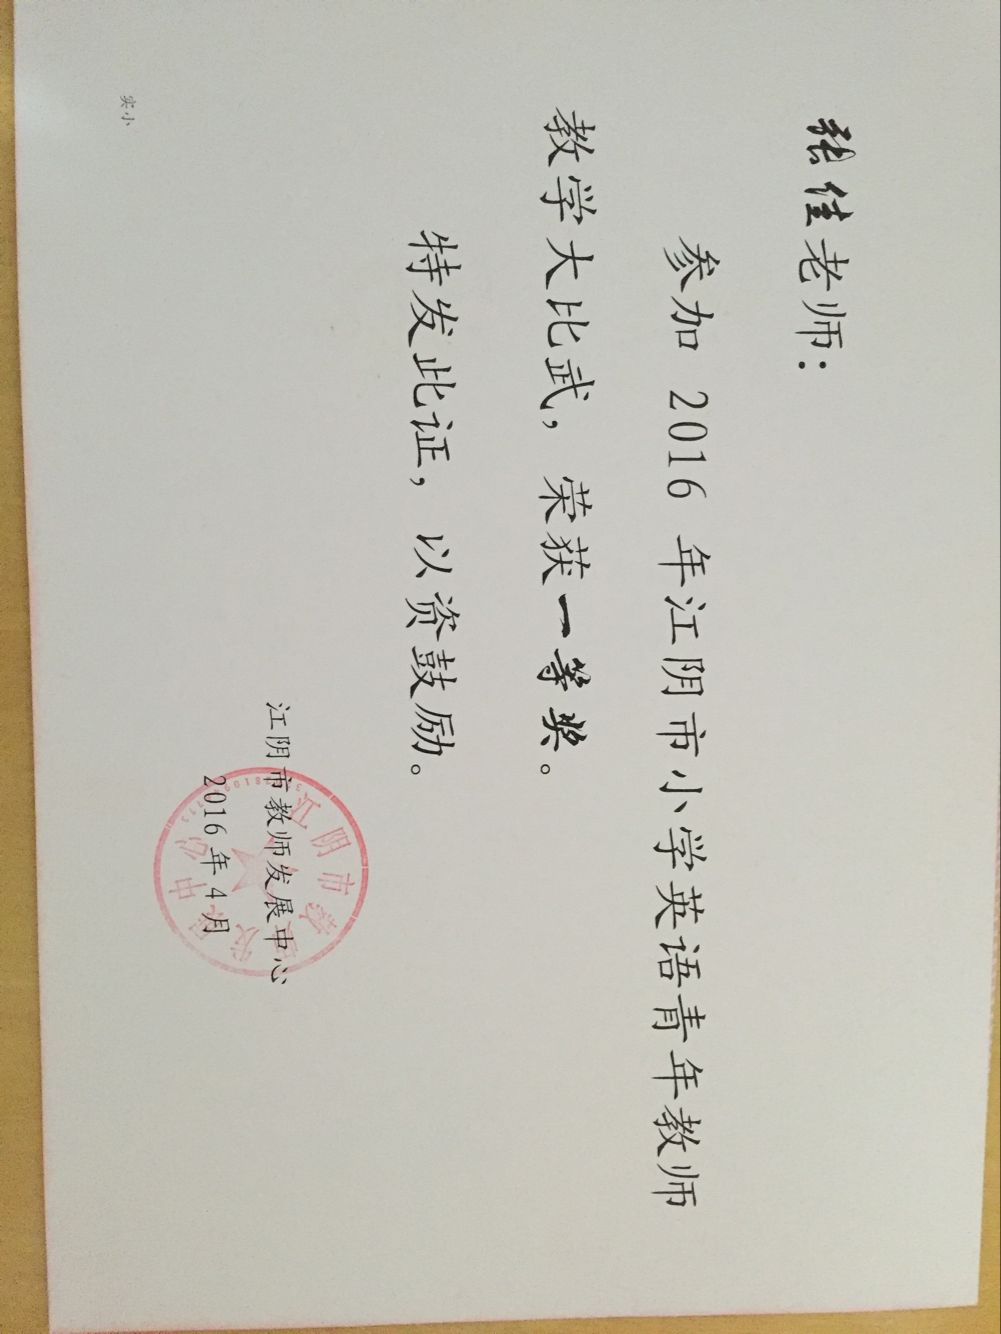 张佳老师：
参加 2016 年江阴市小学英语青年教师
教学大比武，荣获一等奖。
特发此证，以资鼓励。
江阴市教师发展中心
2016年4月
实小